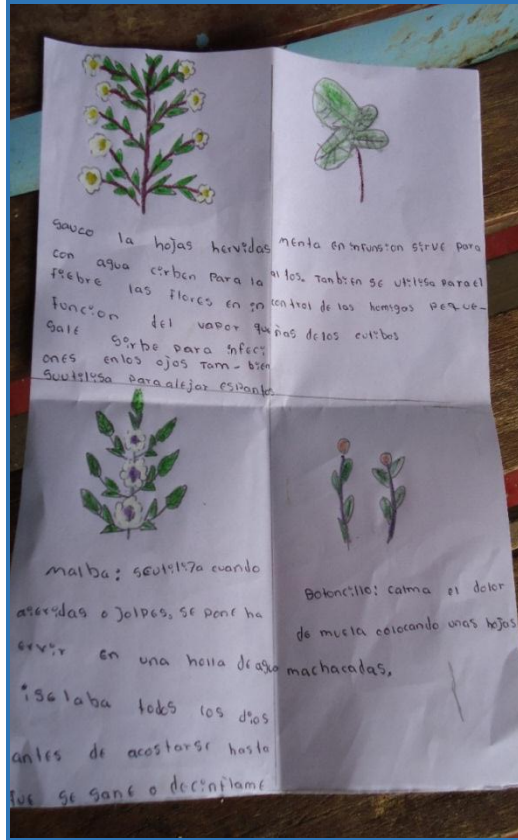 sauco la hojas hervidas
con agua cirben para la
fiebre las flores en in
funcion del vapor que
sale sirbe para infeci
ones en los ojos Tam-bien
seutilisa para alejar espantos
menta en infunsion sirve para
la tos. También se utilisa para el
control de las homigas peque-
ñas de los cutibos
malba: seutiliza cuando
ai eridas o jolpes, se pone ha
ervir en una holla de agua
i se laba todos los dias
antes de acostarse hasta
que se sane o decinflame
Botoncillo: calma el dolor
de muela colocando unas hojas
machacadas.